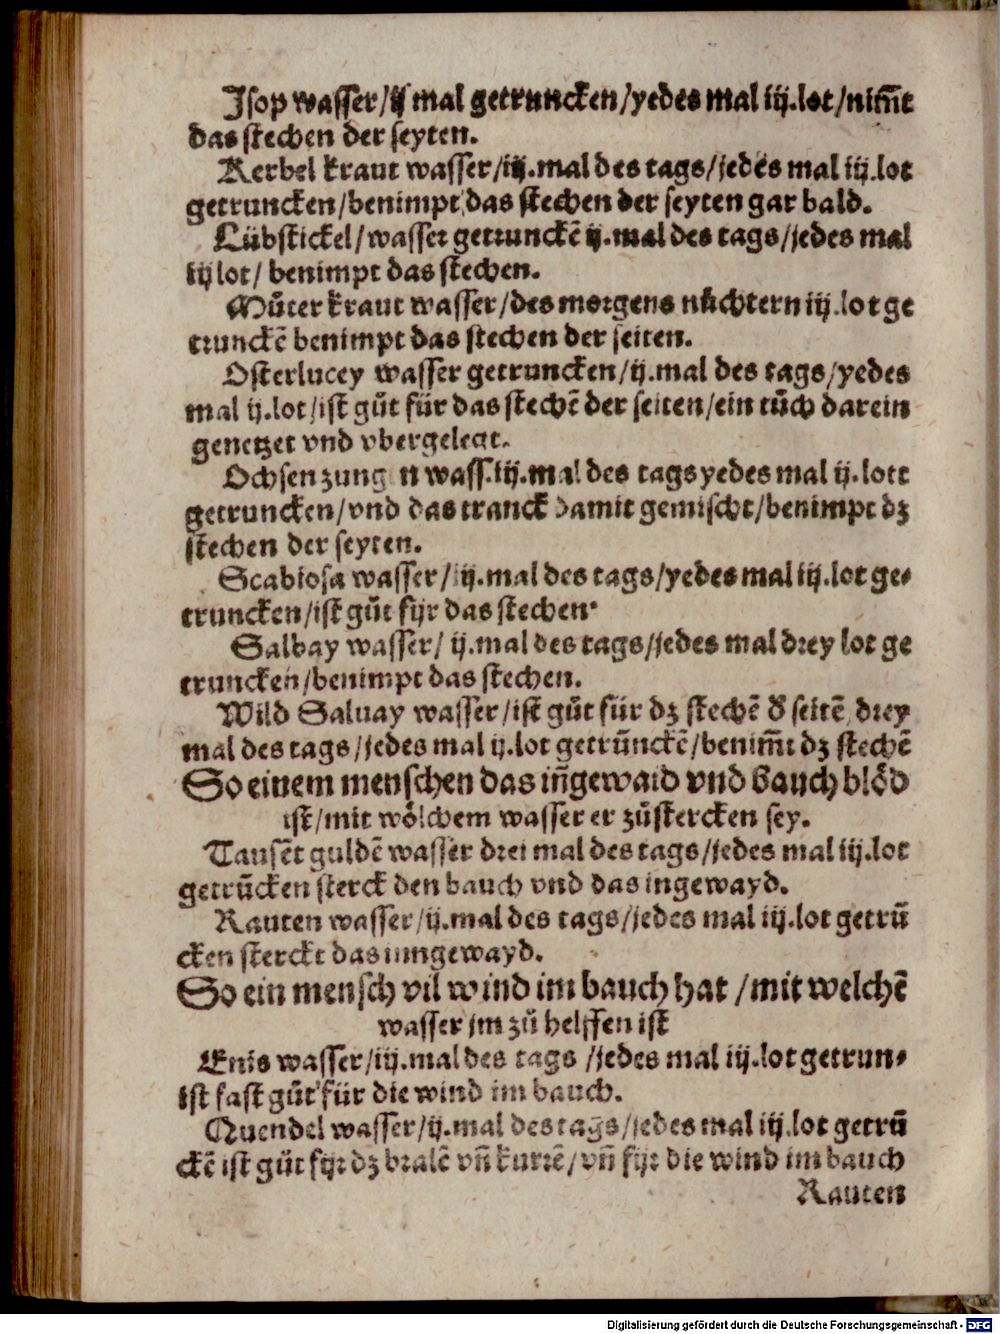 Jsop wasser/ij mal getruncken/yedes mal iij.lot/nim̃t
das stechen der seyten.
Kerbel kraut wasser/iij.mal des tags/jedes mal iij.lot
getruncken/benimpt das stechen der seyten gar bald.
Lübstickel/wasser getrunckẽ ij.mal des tags/jedes mal
iij lot/ benimpt das stechen.
Můter kraut wasser/des morgens nüchtern iij.lot ge
trunckẽ benimpt das stechen der seiten.
Osterlucey wasser getruncken/ij.mal des tags/yedes
mal ij.lot/ist gůt für das stechẽ der seiten/ein tůch darein
genetzet vnd vbergelegt.
Ochsenzung n wass.iij.mal des tags yedes mal ij.lott
getruncken/vnd das tranck damit gemischt/benimpt dz
stechen der seyten.
Scabiosa wasser/iij.mal des tags/yedes mal iij.lot ge-
truncken/ist gůt fijr das stechen.
Salbay wasser/ ij.mal des tags/jedes mal drey lot ge
truncken/benimpt das stechen.
Wild Saluay wasser/ist gůt für dz stechẽ ď seitẽ drey
mal des tags/jedes mal ij.lot getrũnckẽ/benim̃t dz stechẽ
So einem menschen das iñgewaid vnd bauch blöd
ist/mit wölchem wasser er zůstercken sey.
Tausẽt guldẽ wasser drei mal des tags/jedes mal iij.lot
getrũcken sterck den bauch vnd das ingewayd.
Rauten wasser/ij.mal des tags/jedes mal iij.lot getrũ
cken sterckt das inngewayd.
So ein mensch vil wind im bauch hat /mit welchẽ
wasser jm zů helffen ist
Enis wasser/iij.mal des tags /jedes mal iij.lot getrun-
ist fast gůt für die wind im bauch.
Quendel wasser/ij.mal des tags/jedes mal iij.lot getrũ
ckẽ ist gůt fijr dz bralẽ vñ kurrẽ/vñ fijr die wind im bauch
Rauten
Digitalisierung gefördert durch die Deutsche Forschungsgemeinschaft - DFG